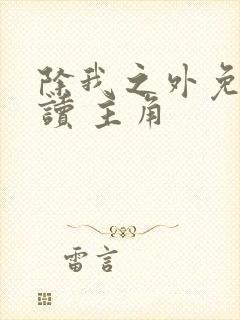 除我之外免
讀 主角
雷言